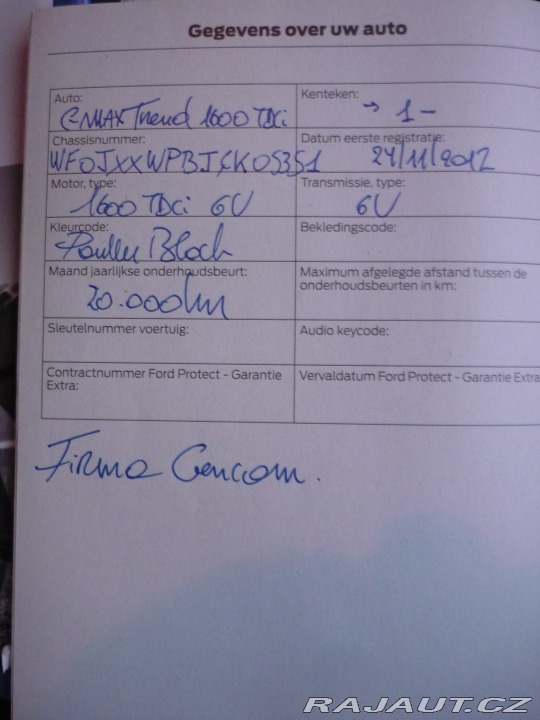 Gegevens over uw auto
Auto:
CMAX Trend 1600 TDCi
Kenteken:
→ 1 -
Chassisnummer:
WFOJXXWPBJCK05351
Datum eerste registratie:
24/11/2012
Motor, type:
1600 TDCi 6V
Transmissie, type:
6V
Kleurcode:
Black
Bekledingscode:
Maand jaarlijkse onderhoudsbeurt:
20.000km
Maximum afgelegde afstand tussen de
onderhoudsbeurten in km:
Sleutelnummer voertuig:
Audio keycode:
Contractnummer Ford Protect - Garantie
Extra:
Vervaldatum Ford Protect - Garantie Extra
Firma Cencom.
RAJAUT.CZ